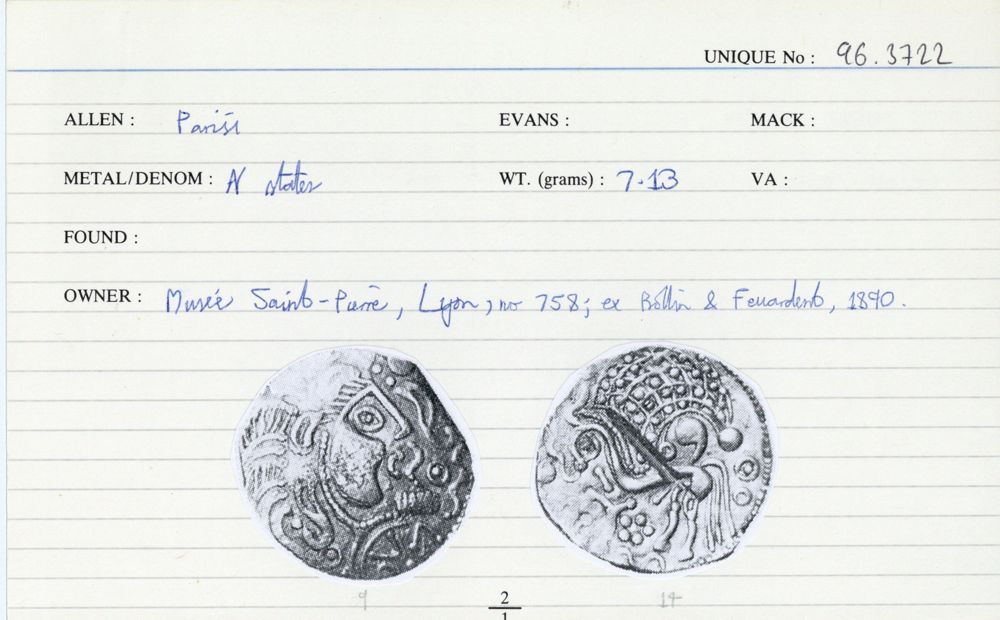 UNIQUE No : 96.3722
ALLEN : Parisi EVANS : MACK :
METAL/DENOM : N stater WT. (grams) : 7.13 VA :
FOUND :
OWNER : Musée Saint-Pierre, Lyon, no 758; ex Rollin & Feuardent, 1890.
9 2 14
1